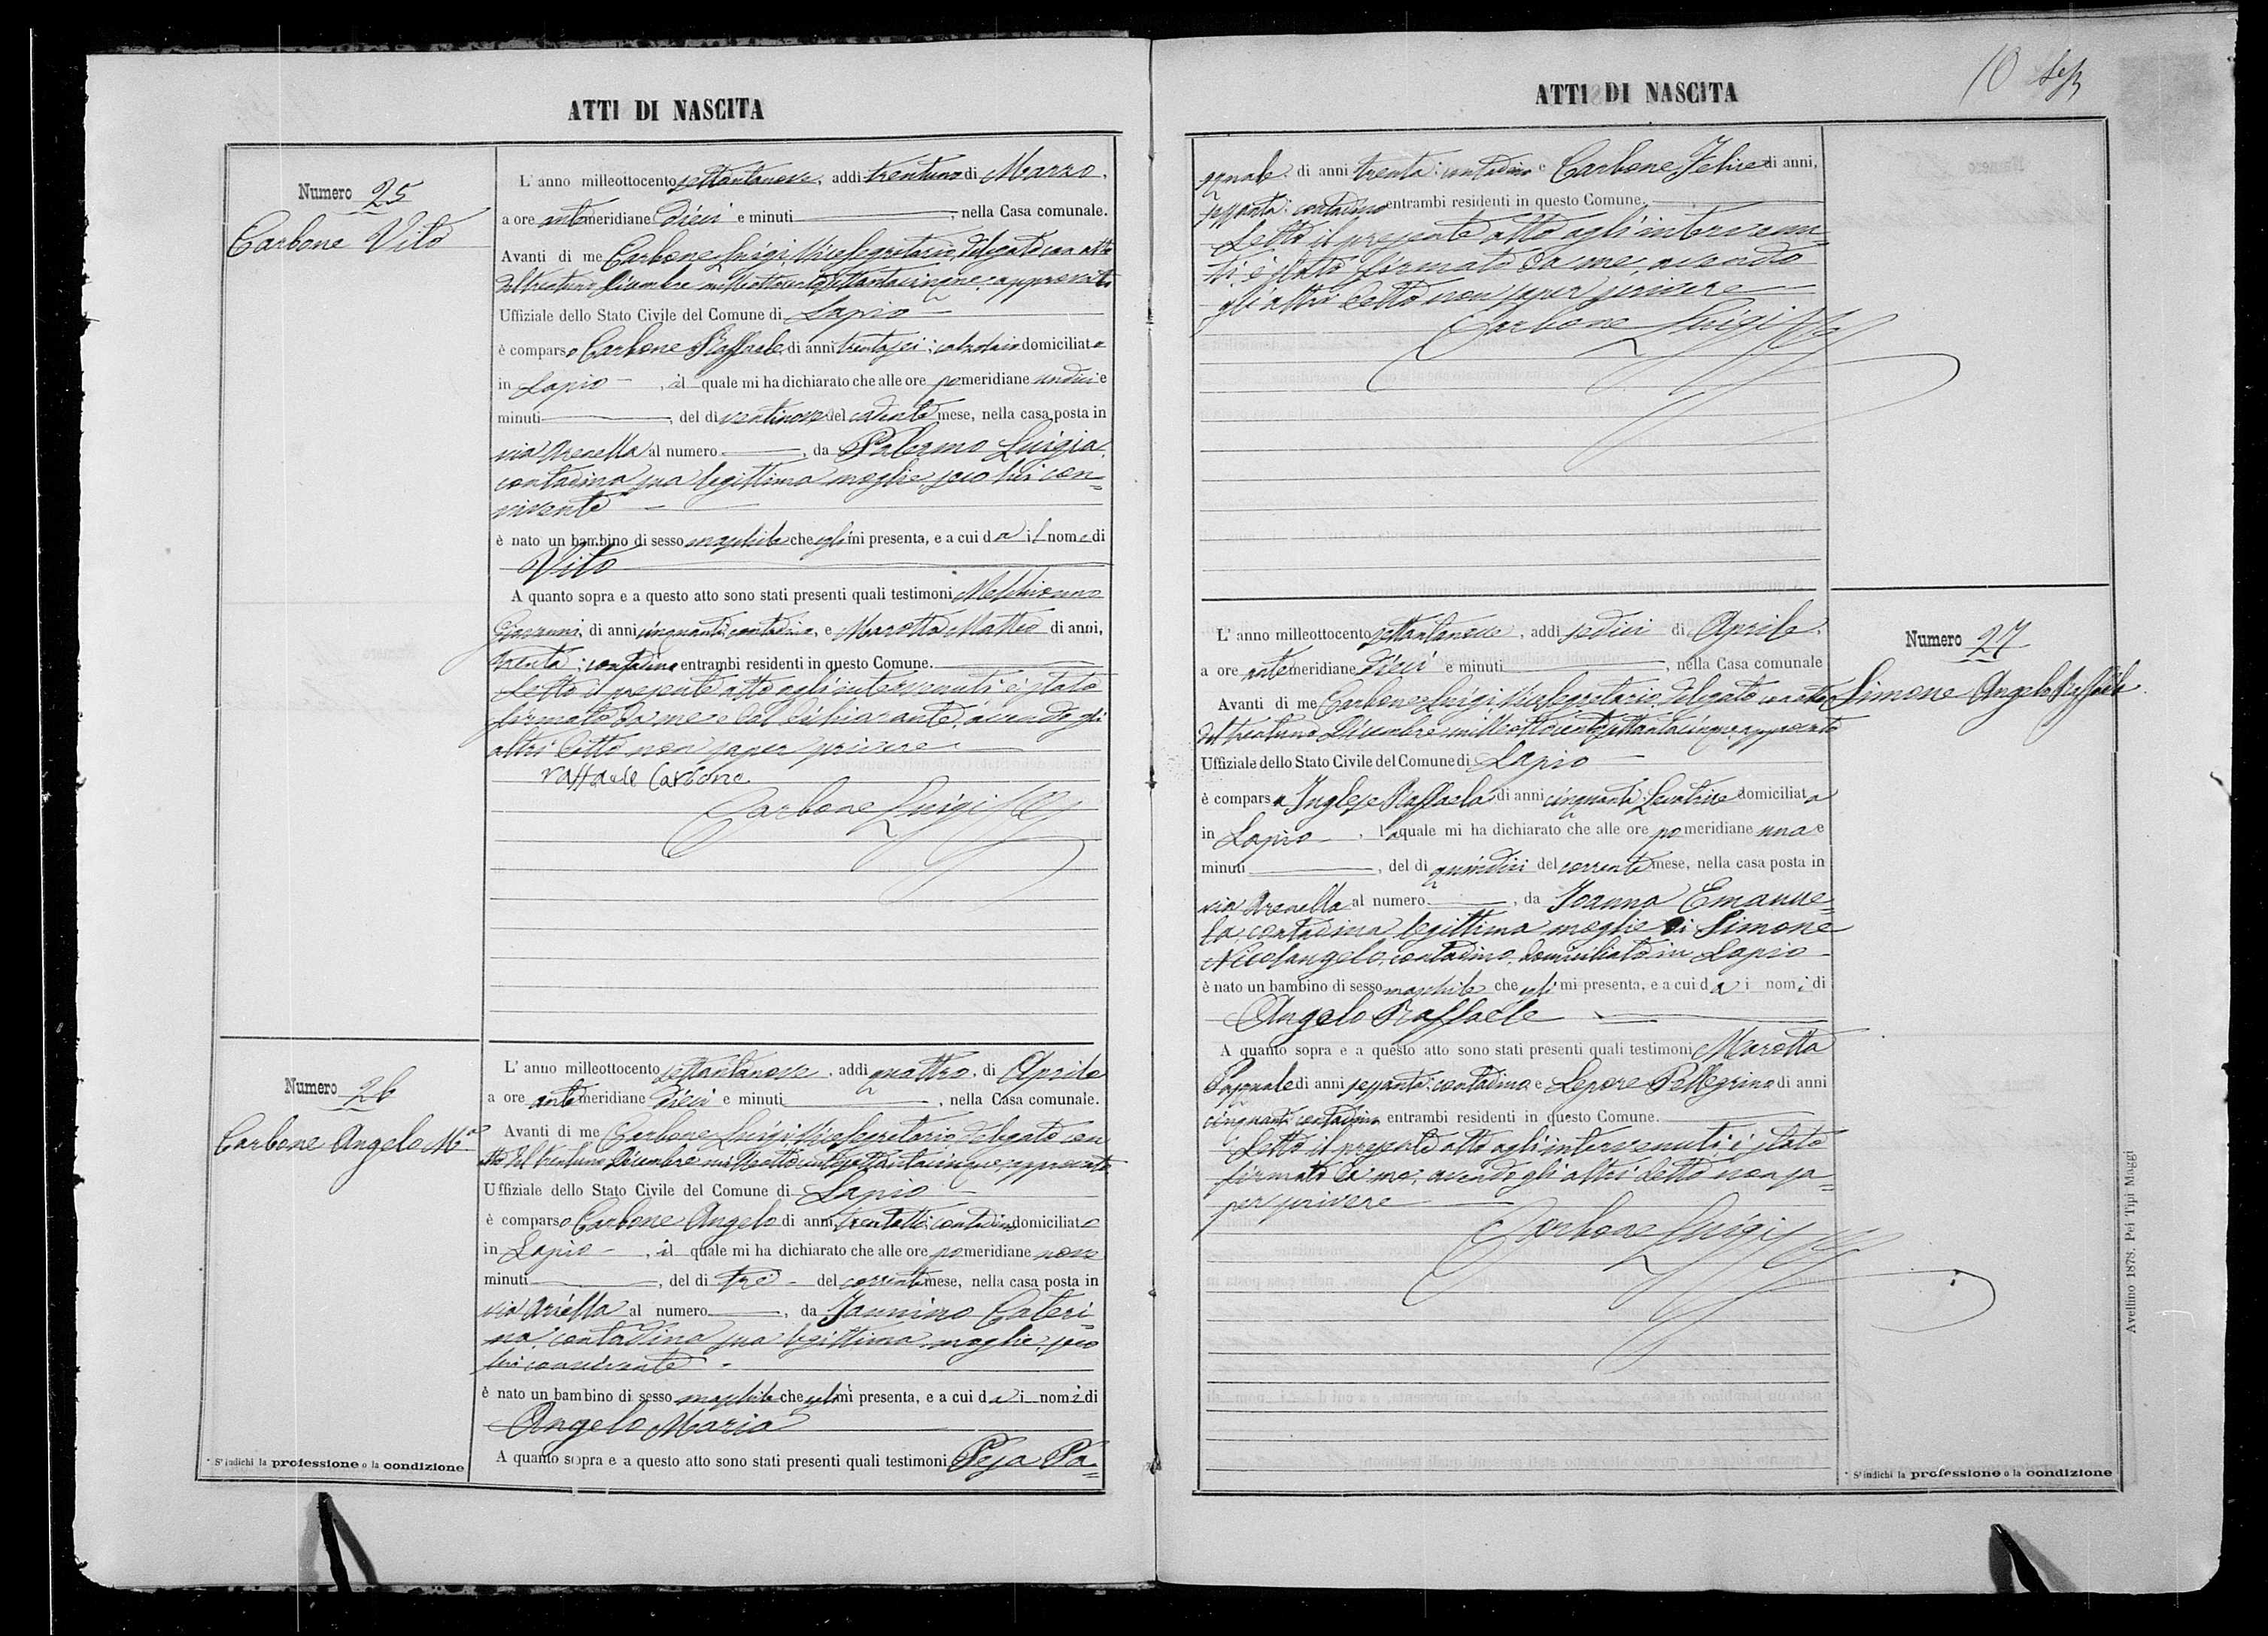 ATTI DI NASCITA
Numero 25
Carbone Vito
L' anno milleottocento settantanove, addi trentuno di Marzo,
a ore antemeridiane dieci e minuti , nella Casa comunale.
Avanti di me Carbone Luigi, Vicesegretario, delegato con atto
del trentuno Dicembre milleottocentosettantacinque, approvato
Uffiziale dello Stato Civile del Comune di Lapio
è comparso Carbone Raffaele, di anni trentasei, calzolaio domiciliato
in Lapio , il quale mi ha dichiarato che alle ore pomeridiane undici e
minuti , del di ventinove del cadente mese, nella casa posta in
via Arenella al numero , da Palermo Luigia,
contadina sua legittima moglie, seco lui con=
vivente
è nato un bambino di sesso maschile che egli mi presenta, e a cui dà il nome di
Vito
A quanto sopra e a questo atto sono stati presenti quali testimoni Melchionno
Giovanni, di anni cinquanta, contadino, e Marotta Matteo di anni,
trenta, contadino entrambi residenti in questo Comune.
Letto il presente atto agli intervenuti è stato
firmato da me e dal dichiarante, avendo gli
altri detto non saper scrivere
raffaele Carbone
Carbone Luigi
Numero 26
Carbone Angelo Mª
L' anno milleottocento settantanove, addi quattro, di Aprile
a ore antemeridiane dieci e minuti , nella Casa comunale.
Avanti di me Carbone Luigi, Vicesegretario delegato con
atto del trentuno Dicembre milleottocentosettantacinque, approvato
Uffiziale dello Stato Civile del Comune di Lapio
è comparso Carbone Angelo di anni, trentotto, contadino, domiciliato
in Lapio , il quale mi ha dichiarato che alle ore pomeridiane nove
minuti , del di tre del corrente mese, nella casa posta in
via Ariella al numero , da Iannino Cateri=
na, contadina sua legittima moglie, seco
lui convivente
è nato un bambino di sesso maschile che egli mi presenta, e a cui dà i nomi di
Angelo Maria
A quanto sopra e a questo atto sono stati presenti quali testimoni Pa=
* S' indichi la professione o la condizione
ATTI DI NASCITA
10
squale, di anni trenta, contadino e Carbone Felice di anni,
sessanta, contadino entrambi residenti in questo Comune.
Letto il presente atto agli intervenu=
ti è stato firmato da me, avendo
gli altri detto non saper scrivere
Carbone Luigi
Numero 27
Simone Angelo Raffaele
L' anno milleottocento settantanove, addi sedici di Aprile,
a ore antemeridiane dieci e minuti , nella Casa comunale
Avanti di me Carbone Luigi, Vicesegretario, delegato con atto
del trentuno Dicembre milleottocentosettantacinque, approvato
Uffiziale dello Stato Civile del Comune di Lapio
è comparsa Inglese Raffaela di anni cinquanta, Levatrice domiciliata
in Lapio , la quale mi ha dichiarato che alle ore pomeridiane una e
minuti , del di quindici del corrente mese, nella casa posta in
via Arenella al numero , da Ioanna Emanue=
la, contadina legittima moglie di Simone
Nicolangelo, contadino, domiciliato in Lapio
è nato un bambino di sesso maschile che egli mi presenta, e a cui dà i nomi di
Angelo Raffaele
A quanto sopra e a questo atto sono stati presenti quali testimoni Marotta
Pasquale di anni sessanta, contadino, e Lepore Pellegrino di anni
cinquanta contadino entrambi residenti in questo Comune.
Letto il presente atto agli intervenuti, è stato
firmato da me, avendo gli altri detto non sa=
per scrivere
Carbone Luigi
* S' indichi la professione o la condizione
Avellino 1878. Pei Tipi Maggi